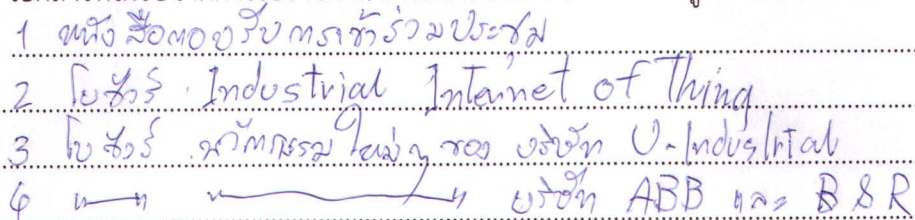 1 หนังสือตอบรับการเข้าร่วมประชุม
2 โบชัวร์ Industrial Internet of Thing
3 โบชัวร์ นวัตกรรมใหม่ๆ ของ บริษัท U-Industrial
4 —"— —"— บริษัท ABB และ B&R